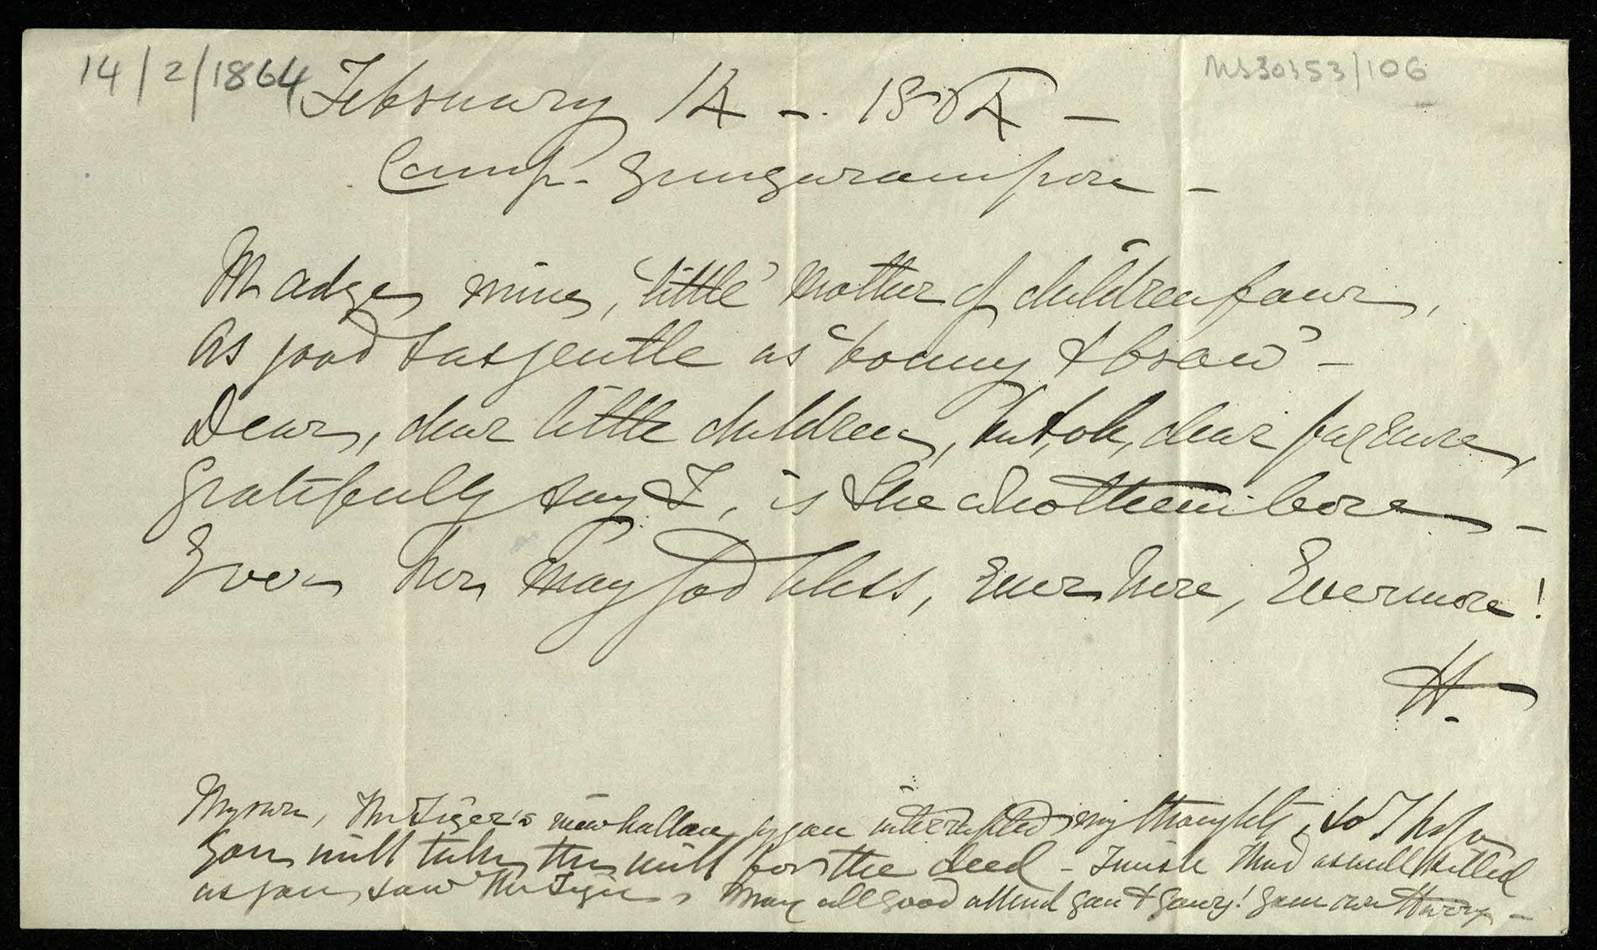 14/2/1864
MS30353/106
February 14 - . 1864 -
Camp. Gungurampore -
Madge mine, 'little' Mother of children four,
As good & as gentle as "bonny & braw" -
Dear, dear little children, but, oh, dear far more,
Gratefully say I, is She who them bore -
Ever her may God bless, Ever here, Evermore!
H.
My own, Mr Tiger's new interrupted my thoughts, so I hope
you will take the will for the deed - I wish I had as well killed
as you, saw Mr Tiger, May all good attend you & yours! Your own Harry -